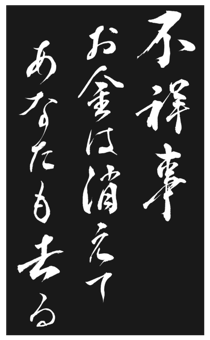 不祥事
お金は消えて
あなたも去る